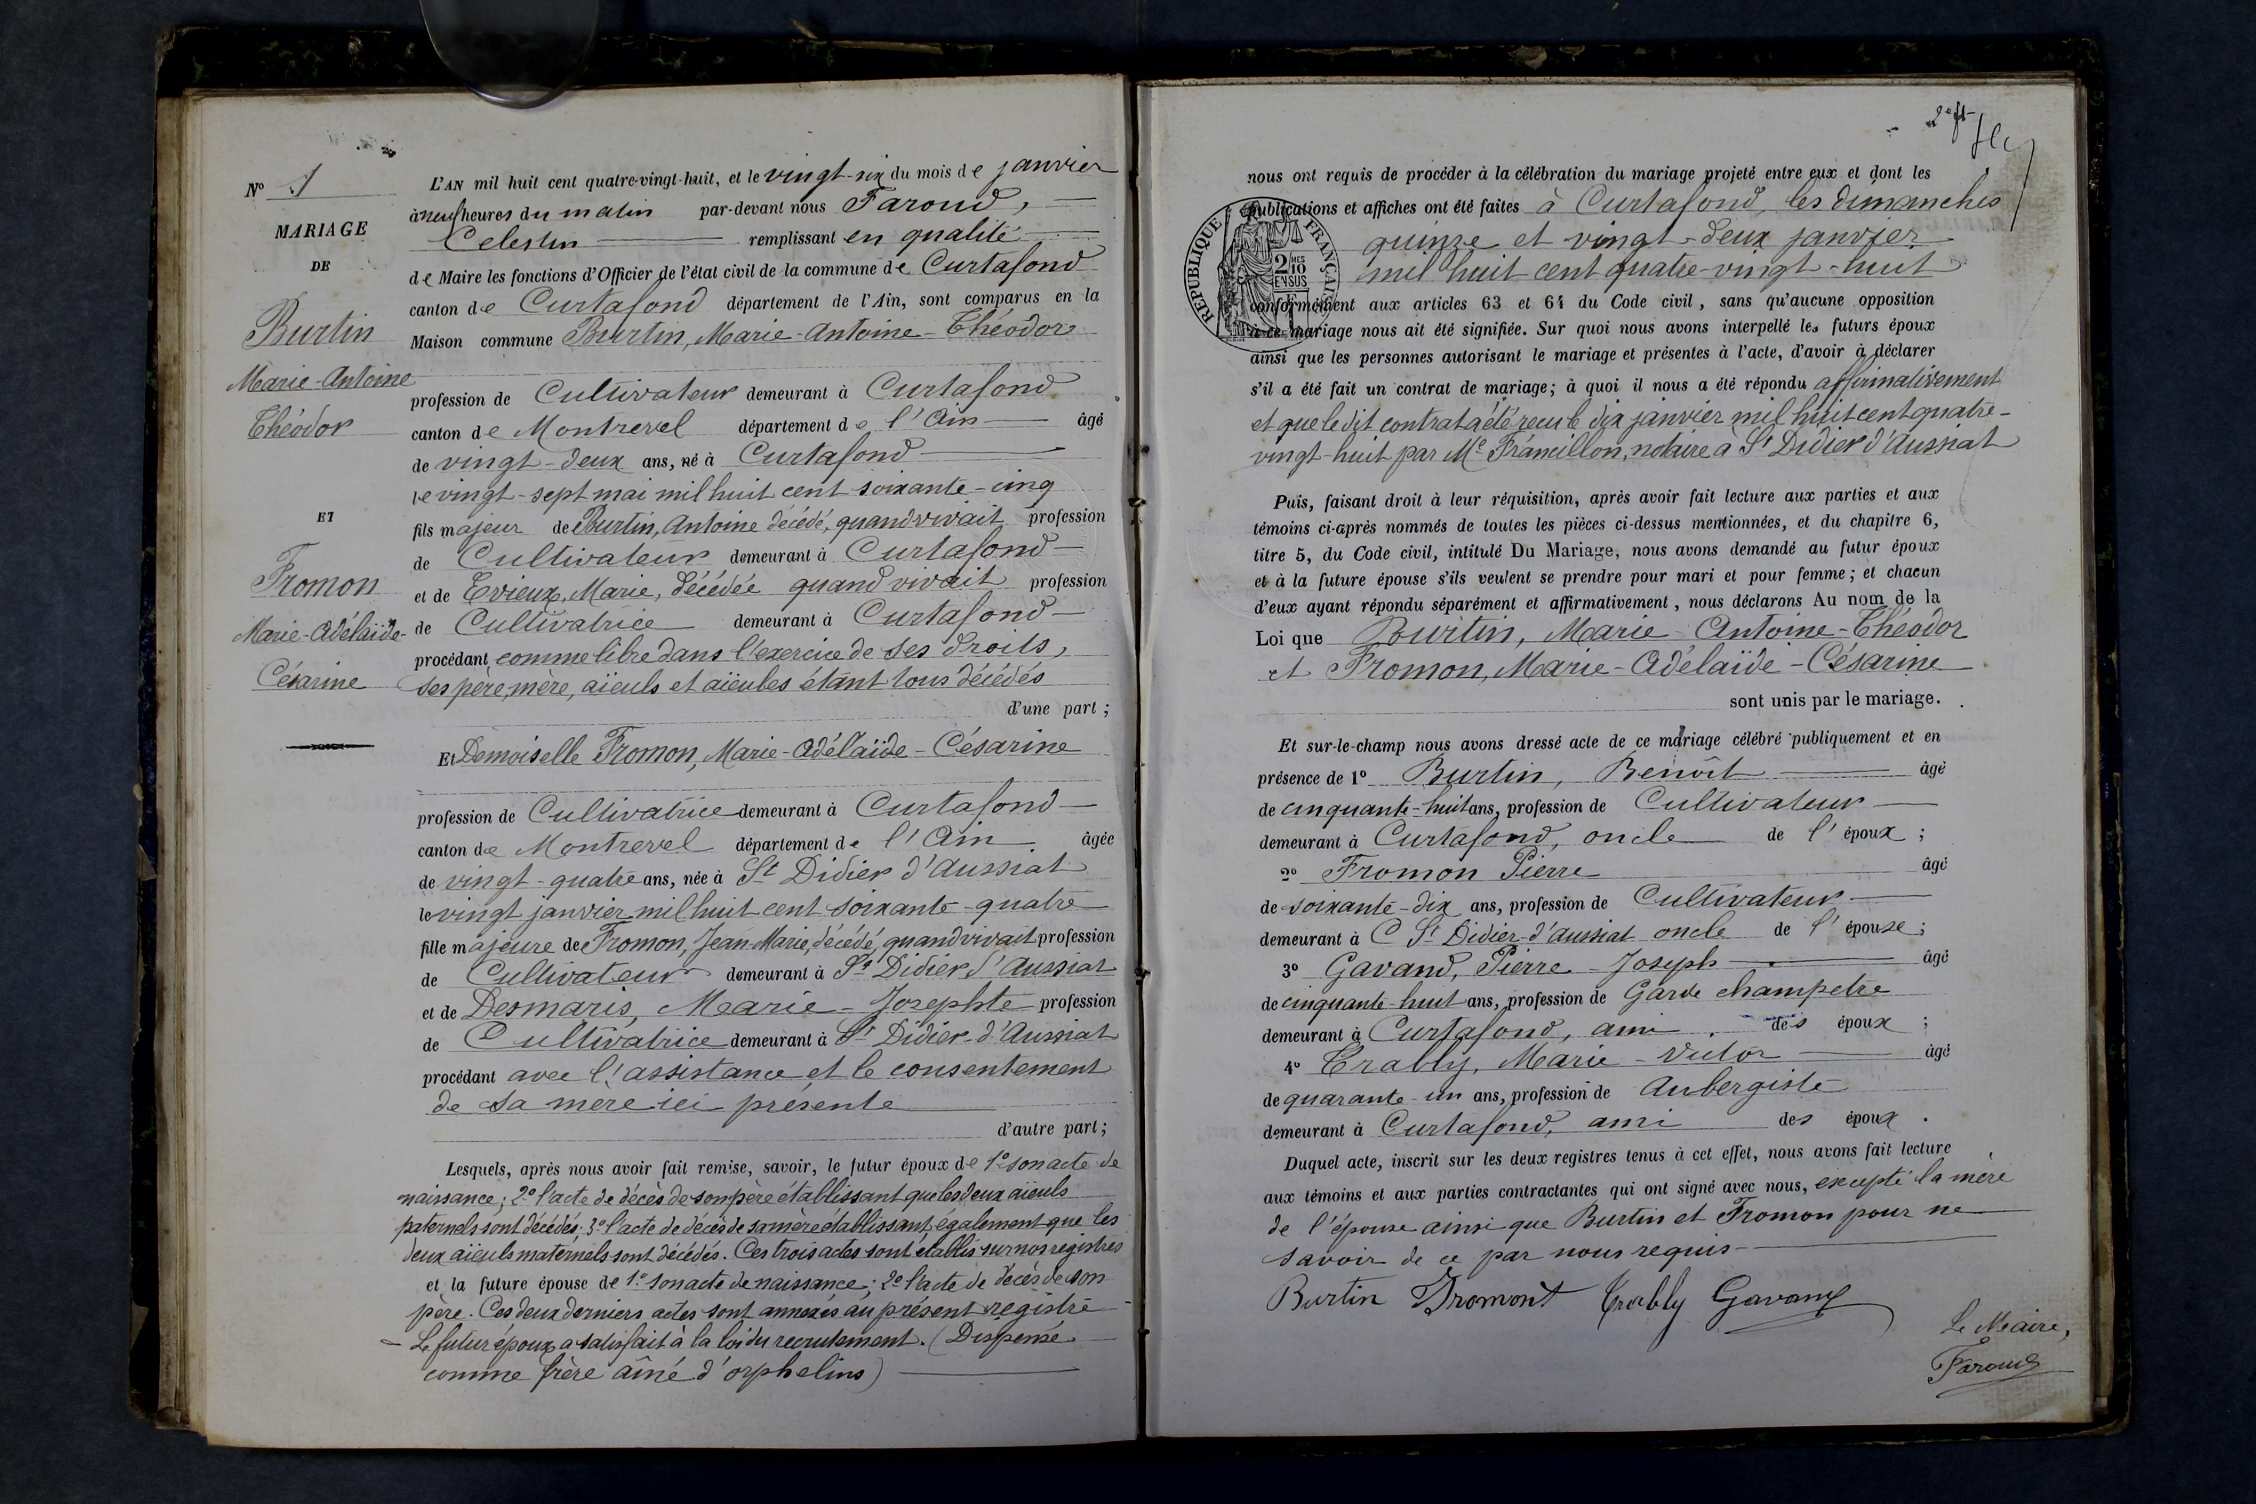 N° 1
MARIAGE
DE
Burtin
Marie-Antoine
Théodor
ET
Fromon
Marie-Adélaïde-
Césarine
L'AN mil huit cent quatre-vingt-huit, et le vingt-six du mois de janvier
à neuf heures du matin par-devant nous Faroud,
Celestin remplissant en qualité
de Maire les fonctions d'Officier de l'état civil de la commune de Curtafond
canton de Curtafond département de l'Ain, sont comparus en la
Maison commune Burtin, Marie-Antoine-Théodor
profession de Cultivateur demeurant à Curtafond
canton de Montrevel département de l'Ain âgé
de vingt-deux ans, né à Curtafond
le vingt-sept mai mil huit cent soixante-cinq
fils majeur de Burtin, Antoine décédé, quand vivait profession
de Cultivateur demeurant à Curtafond
et de Evieux, Marie, décédée quand vivait profession
de Cultivatrice demeurant à Curtafond
procédant comme libre dans l'exercice de ses droits,
ses père, mère, aïeuls et aïeules étant tous décédés
d'une part;
Et Demoiselle Fromon, Marie-Adélaïde-Césarine
profession de Cultivatrice demeurant à Curtafond
canton de Montrevel département de l'Ain âgée
de vingt-quatre ans, née à St Didier d'Aussiat
le vingt janvier mil huit cent soixante-quatre
fille majeure de Fromon, Jean-Marie, décédé, quand vivait profession
de Cultivateur demeurant à St Didier d'Aussiat
et de Desmaris, Marie-Josephte profession
de Cultivatrice demeurant à St Didier-d'Aussiat
procédant avec l'assistance et le consentement
de sa mere ici présente
d'autre part;
Lesquels, après nous avoir fait remise, savoir, le futur époux de 1° son acte de
naissance; 2° l'acte de décès de son père établissant que les deux aïeuls
paternels sont décédés; 3° l'acte de décès de sa mère établissant également que les
deux aïeuls maternels sont décédés. Ces trois actes sont établis sur nos registres
et la future épouse de 1° son acte de naissance; 2° l'acte de decès de son
père. Ces deux derniers actes sont annexés au présent registre
- Le futur époux a satisfait à la loi du recrutement. (Dispensé
comme frère aîné d'orphelins)
2e ft
nous ont requis de procéder à la célébration du mariage projeté entre eux et dont les
publications et affiches ont été faites à Curtafond, les dimanches
quinze et vingt-deux janvier
mil huit cent quatre-vingt-huit
RÉPUBLIQUE FRANÇAISE
2 MES
10
EN SUS
conformément aux articles 63 et 64 du Code civil, sans qu'aucune opposition
à ce mariage nous ait été signifiée. Sur quoi nous avons interpellé les futurs époux
ainsi que les personnes autorisant le mariage et présentes à l'acte, d'avoir à déclarer
s'il a été fait un contrat de mariage; à quoi il nous a été répondu affirmativement
et que le dit contrat a été recu le dix janvier mil huit cent quatre-
vingt-huit par Me Francillon, notaire à St Didier d'Aussiat
Puis, faisant droit à leur réquisition, après avoir fait lecture aux parties et aux
témoins ci-après nommés de toutes les pièces ci-dessus mentionnées, et du chapitre 6,
titre 5, du Code civil, intitulé Du Mariage, nous avons demandé au futur époux
et à la future épouse s'ils veulent se prendre pour mari et pour femme; et chacun
d'eux ayant répondu séparément et affirmativement, nous déclarons Au nom de la
Loi que Burtin, Marie-Antoine-Théodor
et Fromon, Marie-Adélaïde-Césarine
sont unis par le mariage.
Et sur-le-champ nous avons dressé acte de ce mariage célébré publiquement et en
présence de 1° Burtin, Benoît âgé
de cinquante-huit ans, profession de Cultivateur
demeurant à Curtafond, oncle de l'époux;
2° Fromon Pierre âgé
de soixante-dix ans, profession de Cultivateur
demeurant à St Didier-d'aussiat oncle de l'épouse;
3° Gavand, Pierre-Joseph âgé
de cinquante-huit ans, profession de Garde champetre
demeurant à Curtafond, ami des époux;
4° Trably, Marie-Victor âgé
de quarante-un ans, profession de Aubergiste
demeurant à Curtafond, ami des époux.
Duquel acte, inscrit sur les deux registres tenus à cet effet, nous avons fait lecture
aux témoins et aux parties contractantes qui ont signé avec nous, excepté la mère
de l'épouse ainsi que Burtin et Fromon pour ne
savoir de ce par nous requis
Burtin Fromont Trably Gavand
Le Maire,
Faroud